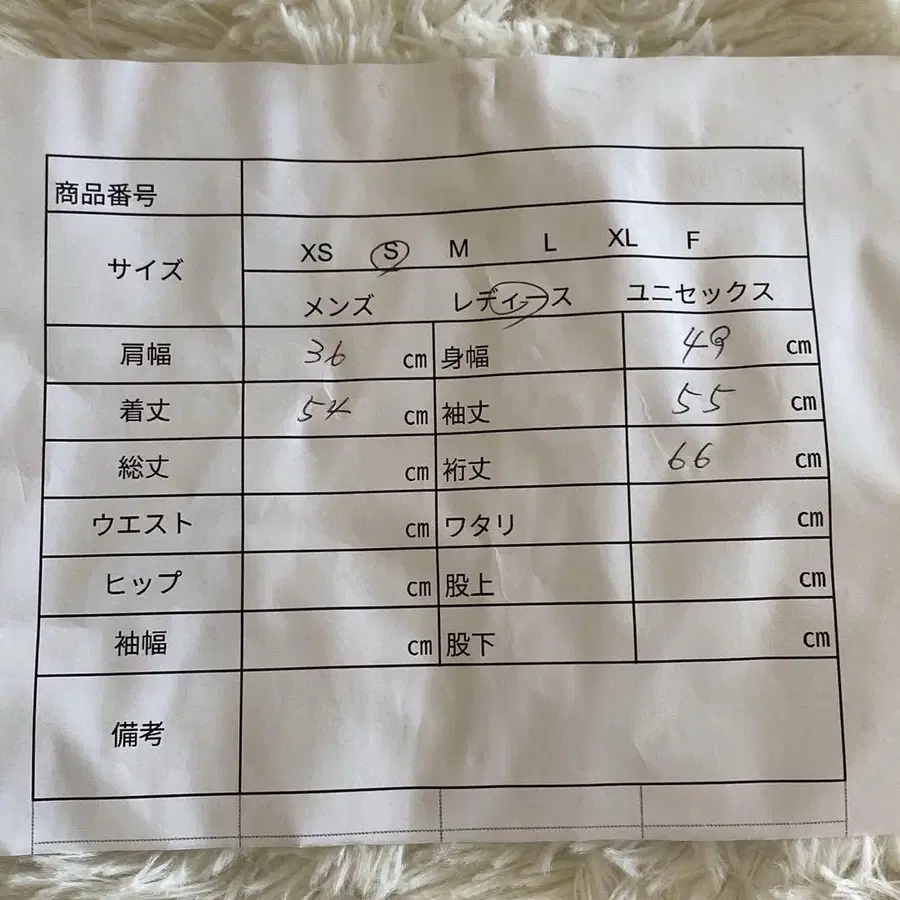 商品番号
サイズ XS S M L XL F
メンズ レディース ユニセックス
肩幅 36 cm 身幅 49 cm
着丈 54 cm 袖丈 55 cm
総丈 cm 裄丈 66 cm
ウエスト cm ワタリ cm
ヒップ cm 股上 cm
袖幅 cm 股下 cm
備考